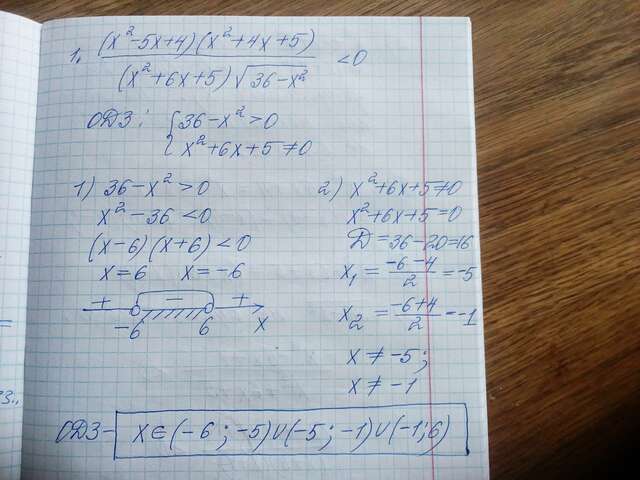 1. (x²-5x+4)(x²+4x+5) / (x²+6x+5)√36-x² <0
ОДЗ: { 36-x²>0
x²+6x+5≠0
1) 36-x²>0
x²-36<0
(x-6)(x+6)<0
x=6 x=-6
+ - +
-6 6 x
2) x²+6x+5≠0
x²+6x+5=0
D=36-20=16
x₁ = -6-4 / 2 = -5
x₂ = -6+4 / 2 = -1
x ≠ -5;
x ≠ -1
ОДЗ- x∈(-6; -5)∪(-5; -1)∪(-1;6)